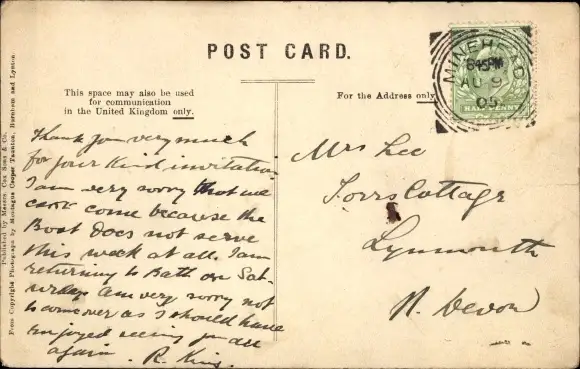 POST CARD.
This space may also be used
for communication
in the United Kingdom only.
For the Address only
MINEHEAD
6.45PM
AU 9
05
HALFPENNY
Thank you very much
for your kind invitation
I am very sorry that we
can't come because the
Boat does not serve
this week at all. I am
returning to Bath on Sat-
urday am very sorry not
to come over as I should have
Enjoyed seeing you all
again. R. King.
Mrs Lee
Torrs Cottage
Lynmouth
N. Devon
Published by Messrs. Cox Sons & Co.
From Copyright Photograph by Montague Cooper Taunton, Burnham and Lynton.